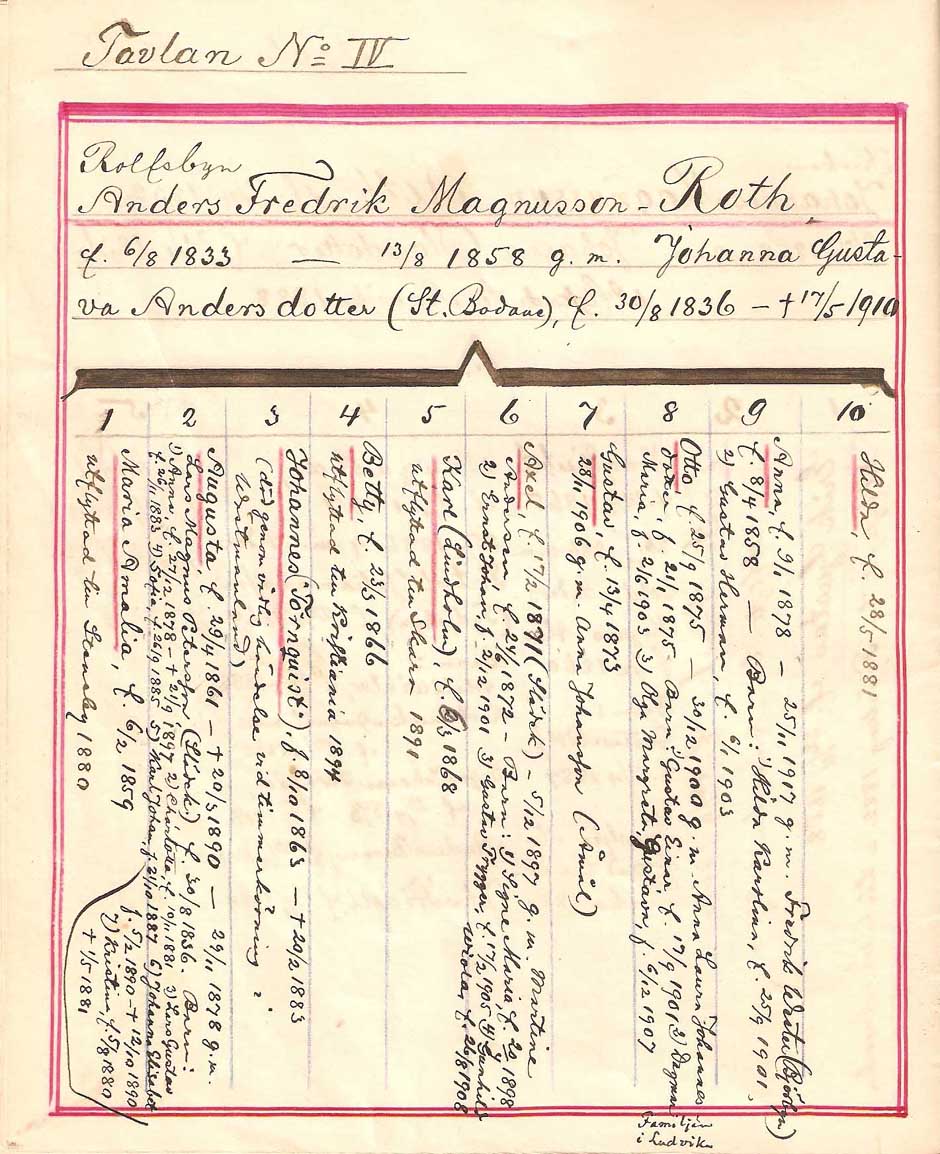 Tavlan No IV
Rolfsbyn
Anders Fredrik Magnusson-Roth
f. 6/8 1833 — 13/8 1858 g. m. Johanna Gusta-
va Andersdotter (St. Bodane), f. 30/8 1836 - † 17/5 1910
1 2 3 4 5 6 7 8 9 10
Maria Amalia, f. 6/2 1859
utflyttad till 1880
Augusta, f. 29/4 1861 — † 20/3 1890 — 29/11 1878 g. m.
Lars Magnus Petersson (Slädek) f. 30/8 1836. Barn:
1) Anna, f. 27/2 1878 - † 21/9 1897 2) Charlotta, f. 10/11 1881 3) Lars Gustav
f. 26/11 1883 4) Sofia, f. 26/9 1885 5) Karl Johan, f. 21/10 1887 6) Johanna Elisabet
f. 5/2 1890 - † 12/10 1890
7) Kristin, f. 5/8 1880
† 1/5 1881
Johannes (Törnquist), f. 8/10 1863 — † 20/2 1883
(död genom händelse vid timmerkörning i
Västmanland)
Betty, f. 23/3 1866
utflyttad till Kristiania 1894
Karl (Lindholm), f. 6/3 1868
utflyttad till Skara 1891
Axel, f. 17/2 1871 (Slädek) - 5/12 1897 g. m. Martine
Andersen f. 24/6 1872 - Barn: 1) Signe Maria, f. 20/4 1898
2) Ernst Johan, f. 2/12 1901 3) Gustav Trygger, f. 17/2 1905 4) Gunhild
Viola, f. 26/8 1908
Gustav, f. 13/4 1873
28/11 1906 g. m. Anna Johansson (Åmål)
Otto, f. 25/9 1875 — 30/12 1900 g. m. Anna Laura Johannes
dotter, f. 21/1 1875 - Barn: 1) Gustav Einar f. 17/9 1901 2) Dagmar
Maria, f. 2/6 1903 3) Olga Margreta Gustava, f. 6/12 1907
Familjen
i Ludvika
Anna, f. 9/1 1878 — 25/11 1917 g. m. Fredrik (Björbyn)
f. 8/4 1858 — Barn: 1) Hilda Karolina, f. 25/9 1901,
2) Gustav Herman, f. 6/1 1903
Hilda, f. 28/5 1881